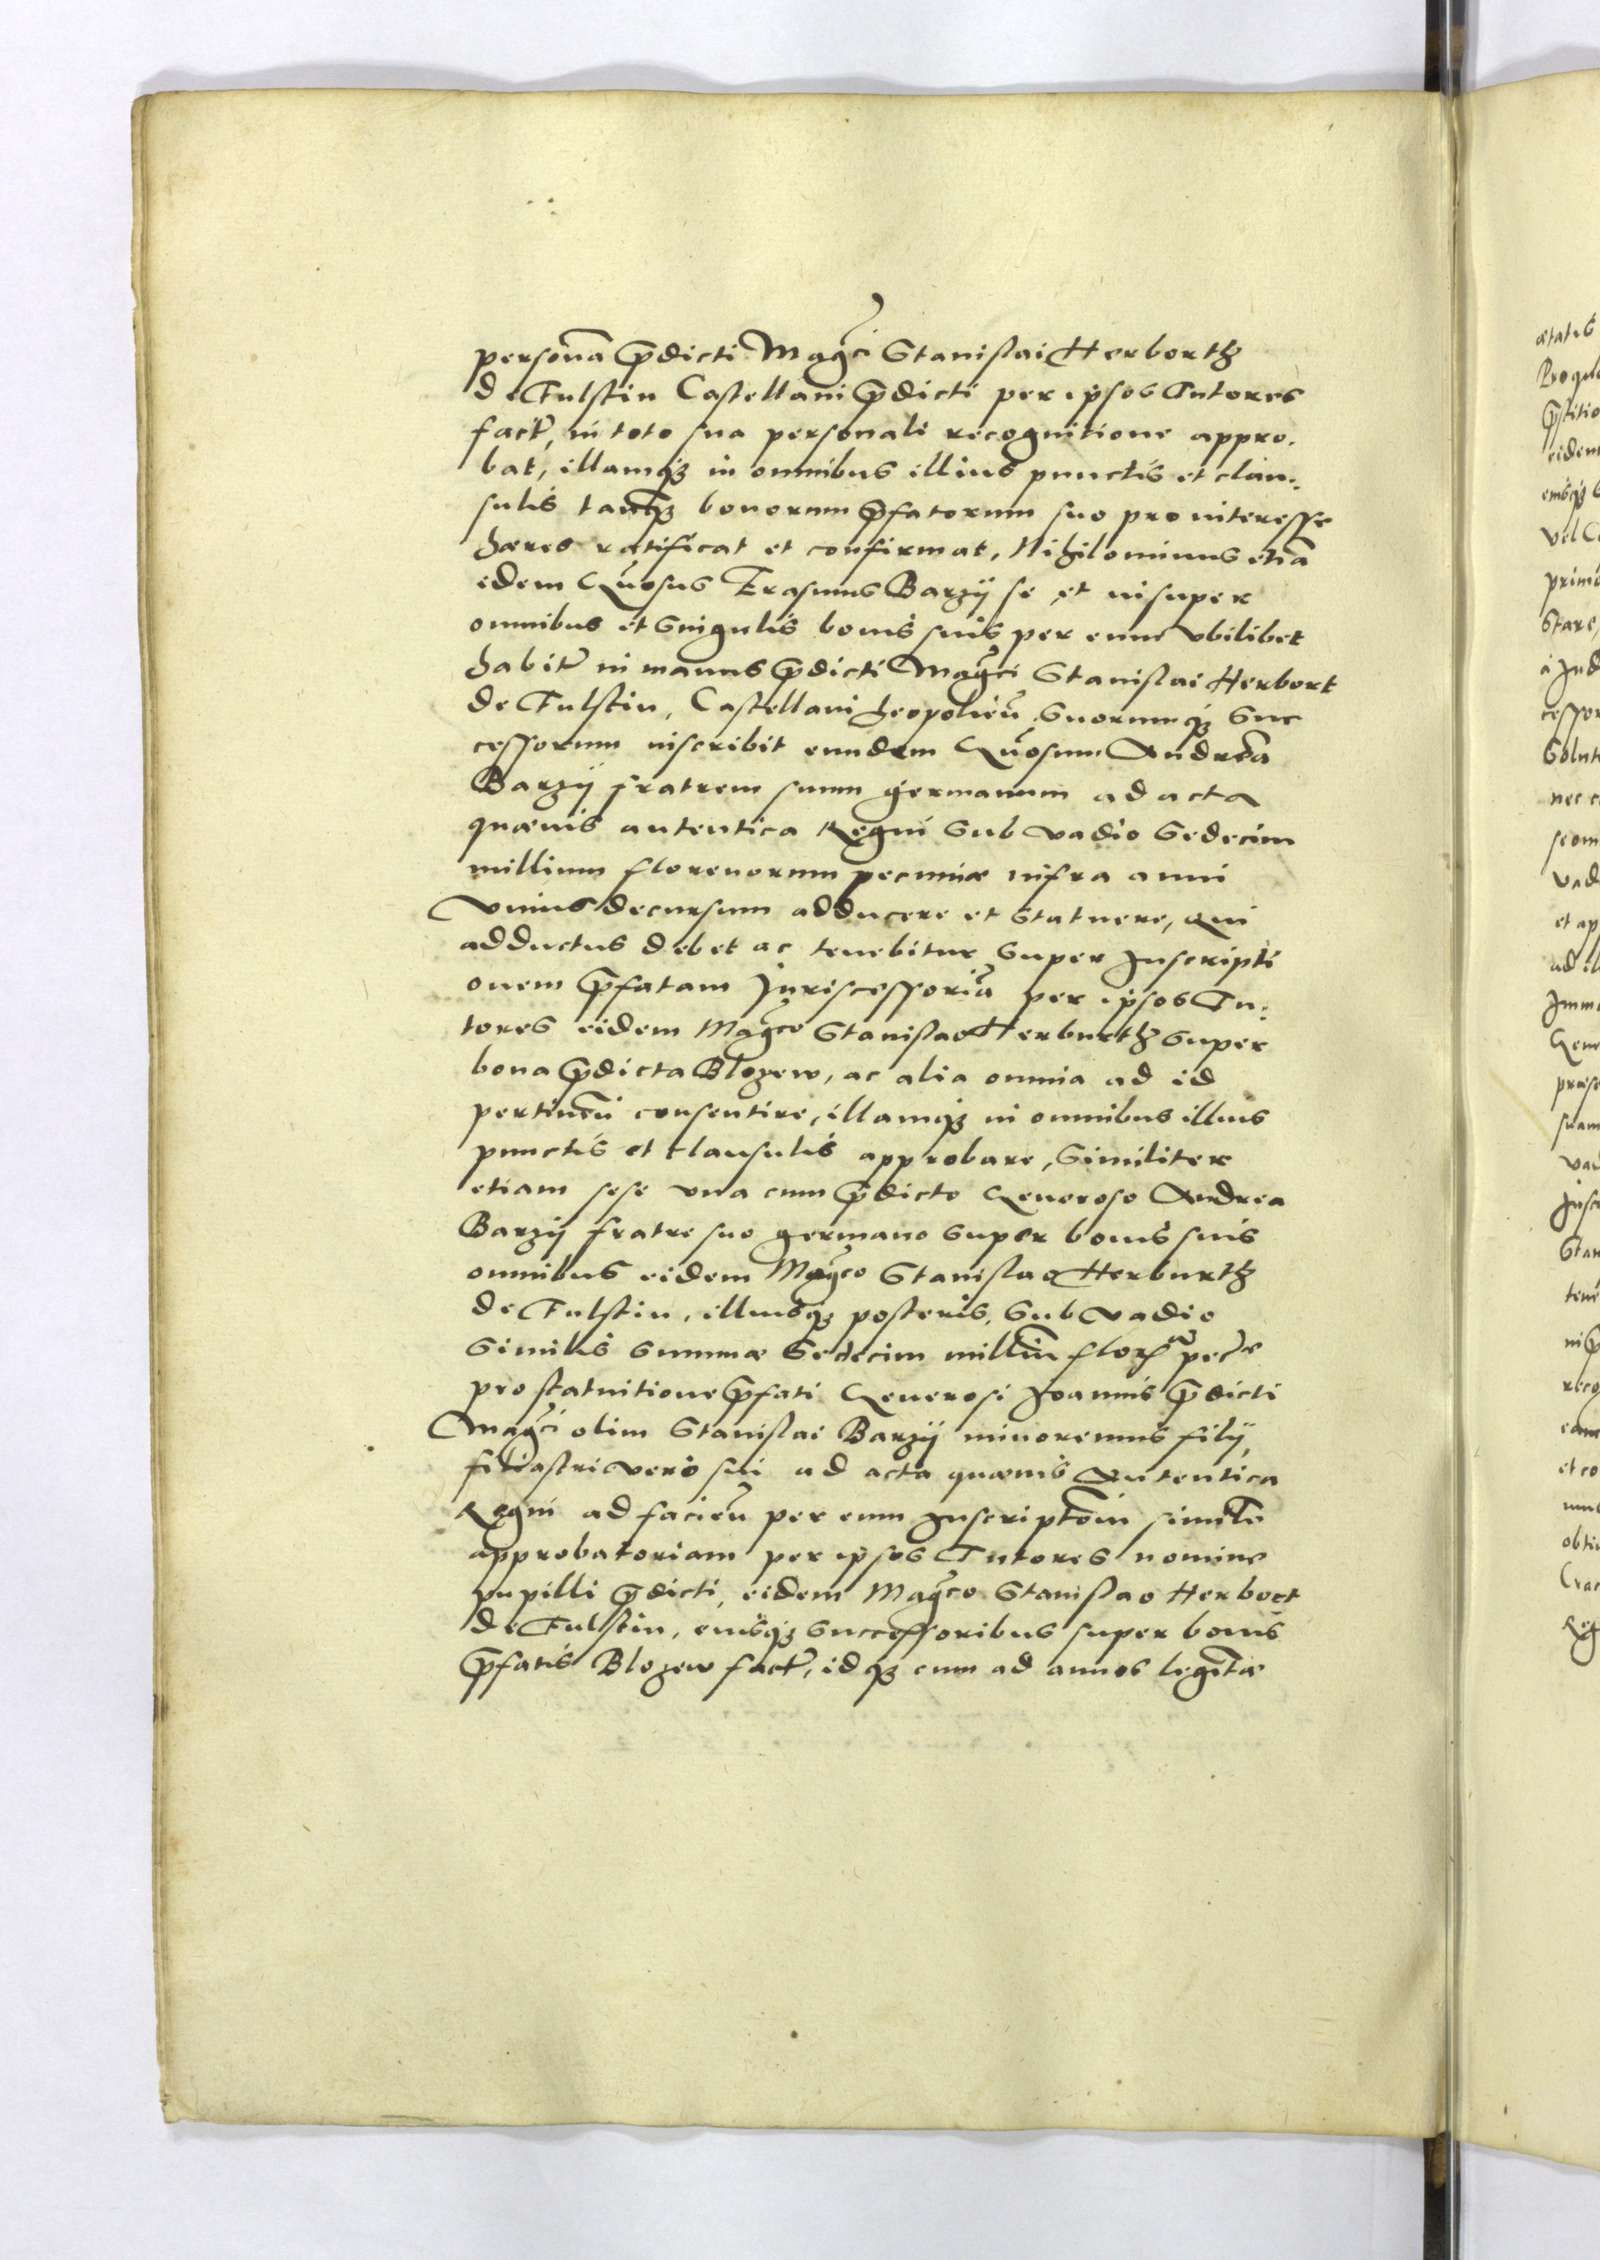 personã p̃dicti Mag̃ci Stanislai Herborth
de Fulstin Castellani p̃dicti per ipsos Tutores
fact̃, in toto sua personali recognitione appro-
bat, illamqȝ in omnibus illius punctis et clau-
sulis tanq̃ȝ bonorum p̃fatorum suo pro interesse
hæres ratificat et confirmat, Nihilominus etiã
idem G̃nosus Erasmus Barzÿ se et insuper
omnibus et Singulis bonis suis per eum vbilibet
habit̃ in manus p̃dicti Mag̃ci Stanislai Herbort
de Fulstin, Castellani Leopolień, Suorumqȝ Suc
cessorum inscribit eundem G̃nosum Andreã
Barzÿ fratrem suum germanum ad acta
quæuis autentica Regni Sub vadio Sedecim
millium florenorum pecuniæ infra anni
Vnius decursum adducere et Statuere, Qui
adductus debet ac tenebitur Super Inscripti
onem p̃fatam Juriscessoriã per ipsos Tu-
tores eidem Mag̃co Stanislao Herburth Super
bona p̃dicta Blozew, ac alia omnia ad id
pertineñ consentire, illamqȝ in omnibus illius
punctis et clausulis approbare, Similiter
etiam sese vna cum p̃dicto Generoso Andrea
Barzÿ fratre suo germano Super bonis suis
omnibus eidem Mag̃co Stanislao Herburth
de Fulstin, illiusqȝ posteris, Sub vadio
Similis Summæ Sedecim milliũ flor̃ pec̃æ
pro statuitione p̃fati Generosi Joannis p̃dicti
Mag̃ci olim Stanislai Barzÿ minorennis filÿ,
filiastri vero sui ad acta quæuis Autentica
Regni ad facień per eum Inscriptõm similẽ
approbatoriam per ipsos Tutores nomine
pupilli p̃dicti, eidem Mag̃co Stanislao Herbort
de Fulstin, eiusqȝ Successoribus super bonis
p̃fatis Blozew fact̃, idqȝ cum ad annos legitĩæ